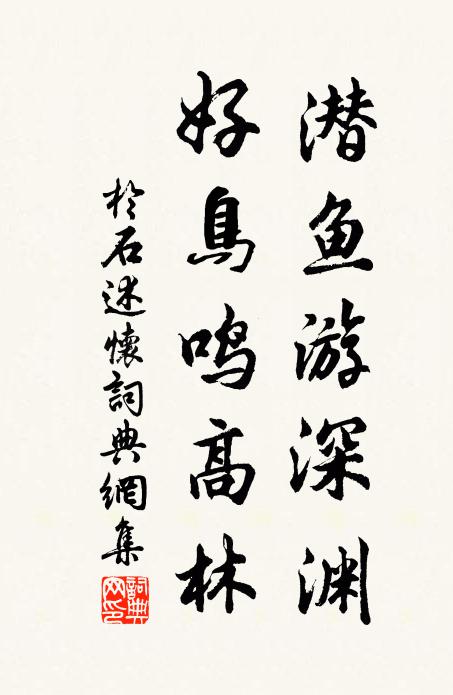 潜鱼游深渊
好鳥鸣高林
於石述懷詞典網集
詞典
网印